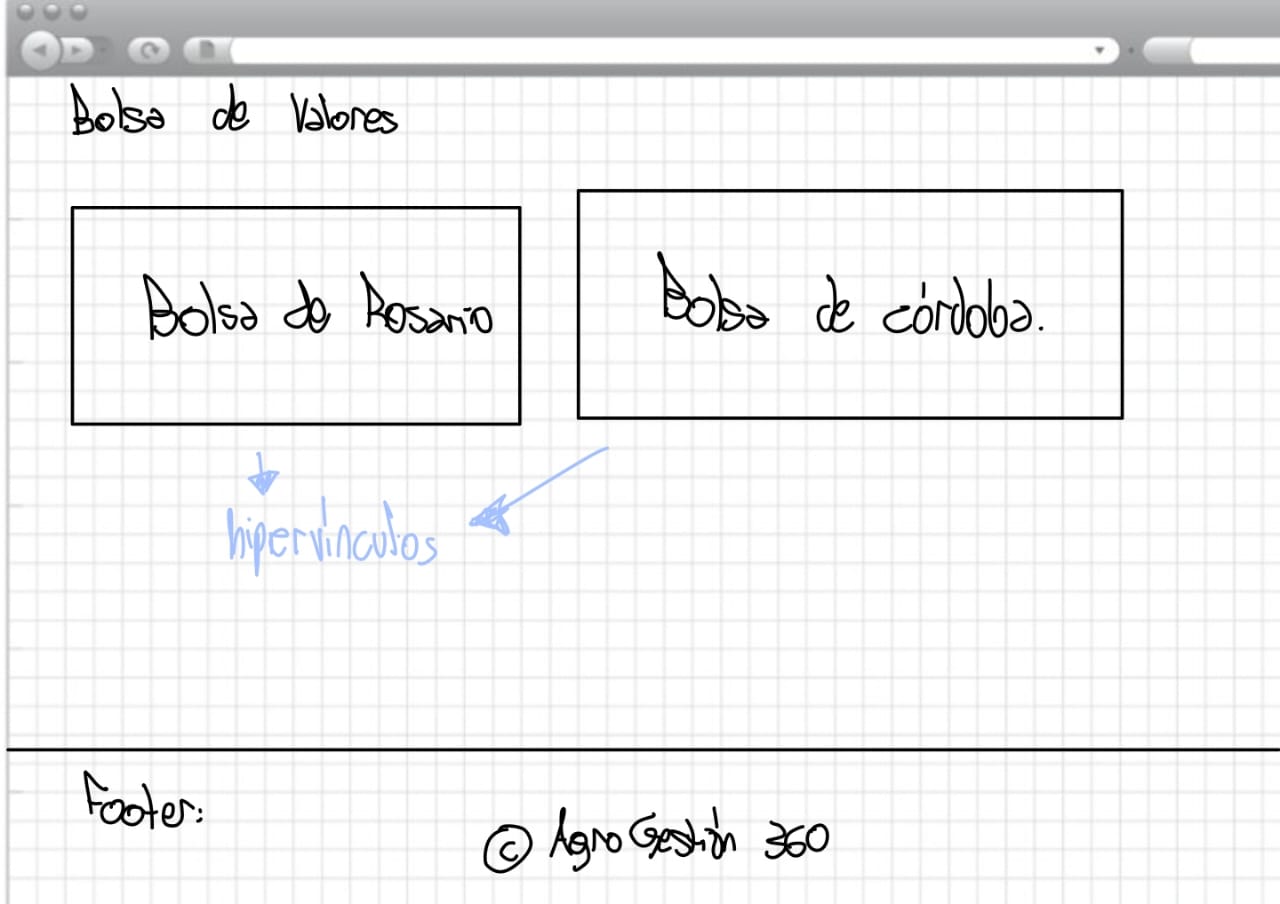 Bolsa de Valores
Bolsa de Rosario
Bolsa de córdoba.
hipervínculos
Footer:
© AgroGestión 360